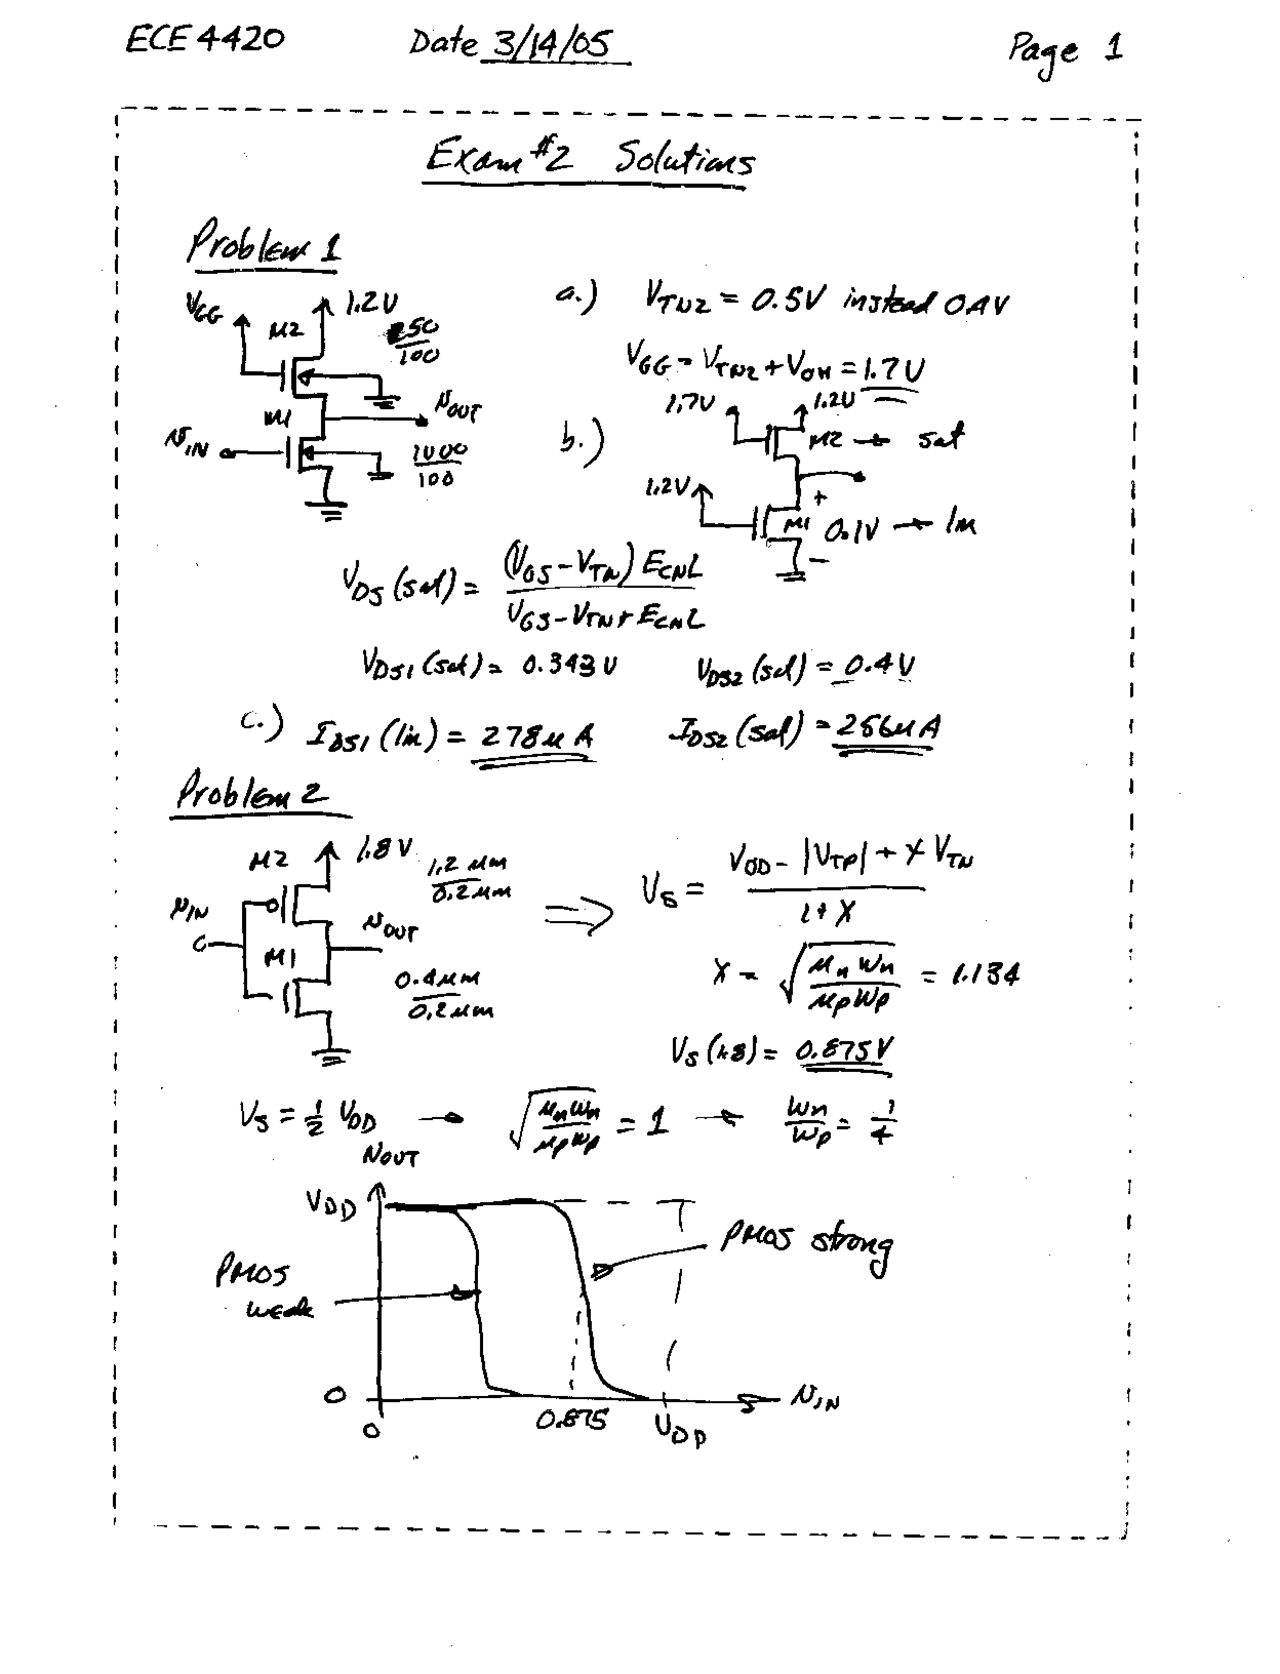 ECE 4420 Date 3/14/05 Page 1
Exam #2 Solutions
Problem 1
VGG
M2
1.2V
250/100
M1
VOUT
VIN
1000/100
a.) VTN2 = 0.5V instead 0.4V
VGG = VTN2 + VOH = 1.7V
b.)
1.7V
1.2V
M2 → sat
1.2V
+
M1 0.1V → lin
−
VDS (sat) = (VGS - VTN) ECNL / VGS - VTN + ECNL
VDS1 (sat) = 0.343V VDS2 (sat) = 0.4V
c.) IDS1 (lin) = 278μA IDS2 (sat) = 256μA
Problem 2
M2
1.8V
1.2μm/0.2μm
VIN
VOUT
M1
0.4μm/0.2μm
⇒ VS = VDD - |VTP| + X VTN / 1 + X
X = √(μn Wn / μp Wp) = 1.134
VS (1.8) = 0.875V
VS = 1/2 VDD → √(μn Wn / μp Wp) = 1 → Wn/Wp = 1/4
VOUT
VDD
PMOS strong
PMOS
weak
0
VIN
0
0.875
VDD